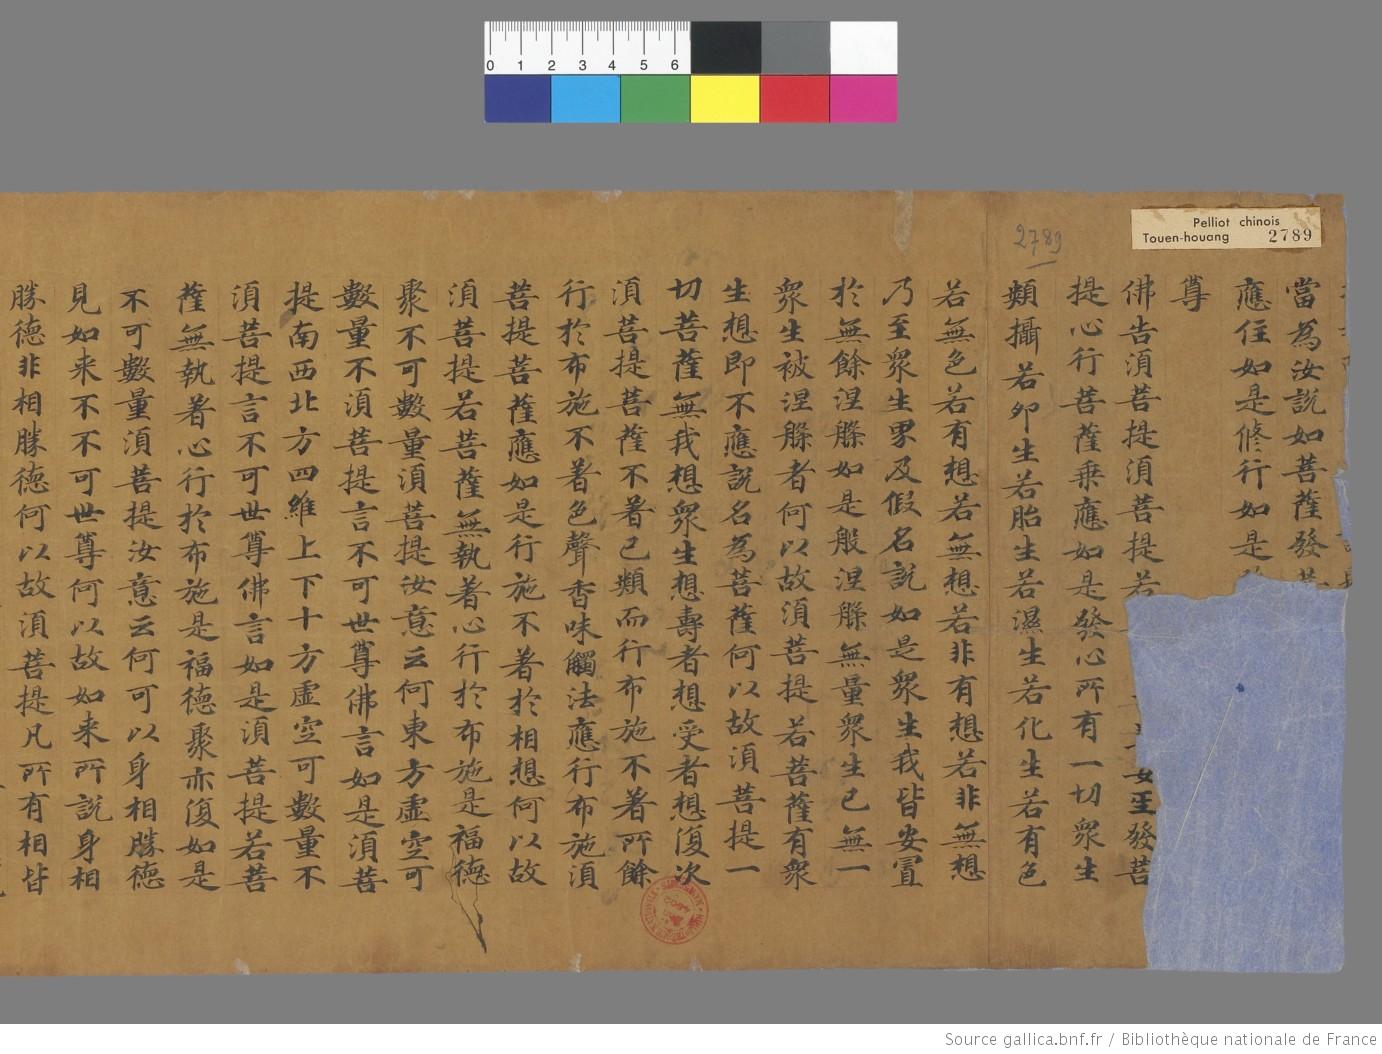 0 1 2 3 4 5 6
Pelliot chinois
Touen-houang 2789
2789
當為汝說如菩薩發菩
應住如是修行如是
尊
佛告湏菩提湏菩提若發菩
提心行菩薩乗應如是發心所有一切衆生
類攝若卵生若胎生若濕生若化生若有色
若無色若有想若無想若非有想若非無想
乃至衆生界及假名説如是衆生我皆安置
於無餘涅槃如是般涅槃無量衆生已無一
衆生被涅槃者何以故湏菩提若菩薩有衆
生想即不應説名為菩薩何以故湏菩提一
切菩薩無我想衆生想壽者想受者想復次
湏菩提菩薩不著己類而行布施不著所餘
行於布施不著色聲香味觸法應行布施湏
菩提菩薩應如是行施不著於相想何以故
湏菩提若菩薩無執著心行於布施是福德
聚不可數量湏菩提汝意云何東方虛空可
數量不湏菩提言不可世尊佛言如是湏菩
提南西北方四維上下十方虛空可數量不
湏菩提言不可世尊佛言如是湏菩提若菩
薩無執著心行於布施是福德聚亦復如是
不可數量湏菩提汝意云何可以身相勝德
見如来不不可世尊何以故如来所説身相
勝德非相勝德何以故湏菩提凡所有相皆
Source gallica.bnf.fr / Bibliothèque nationale de France